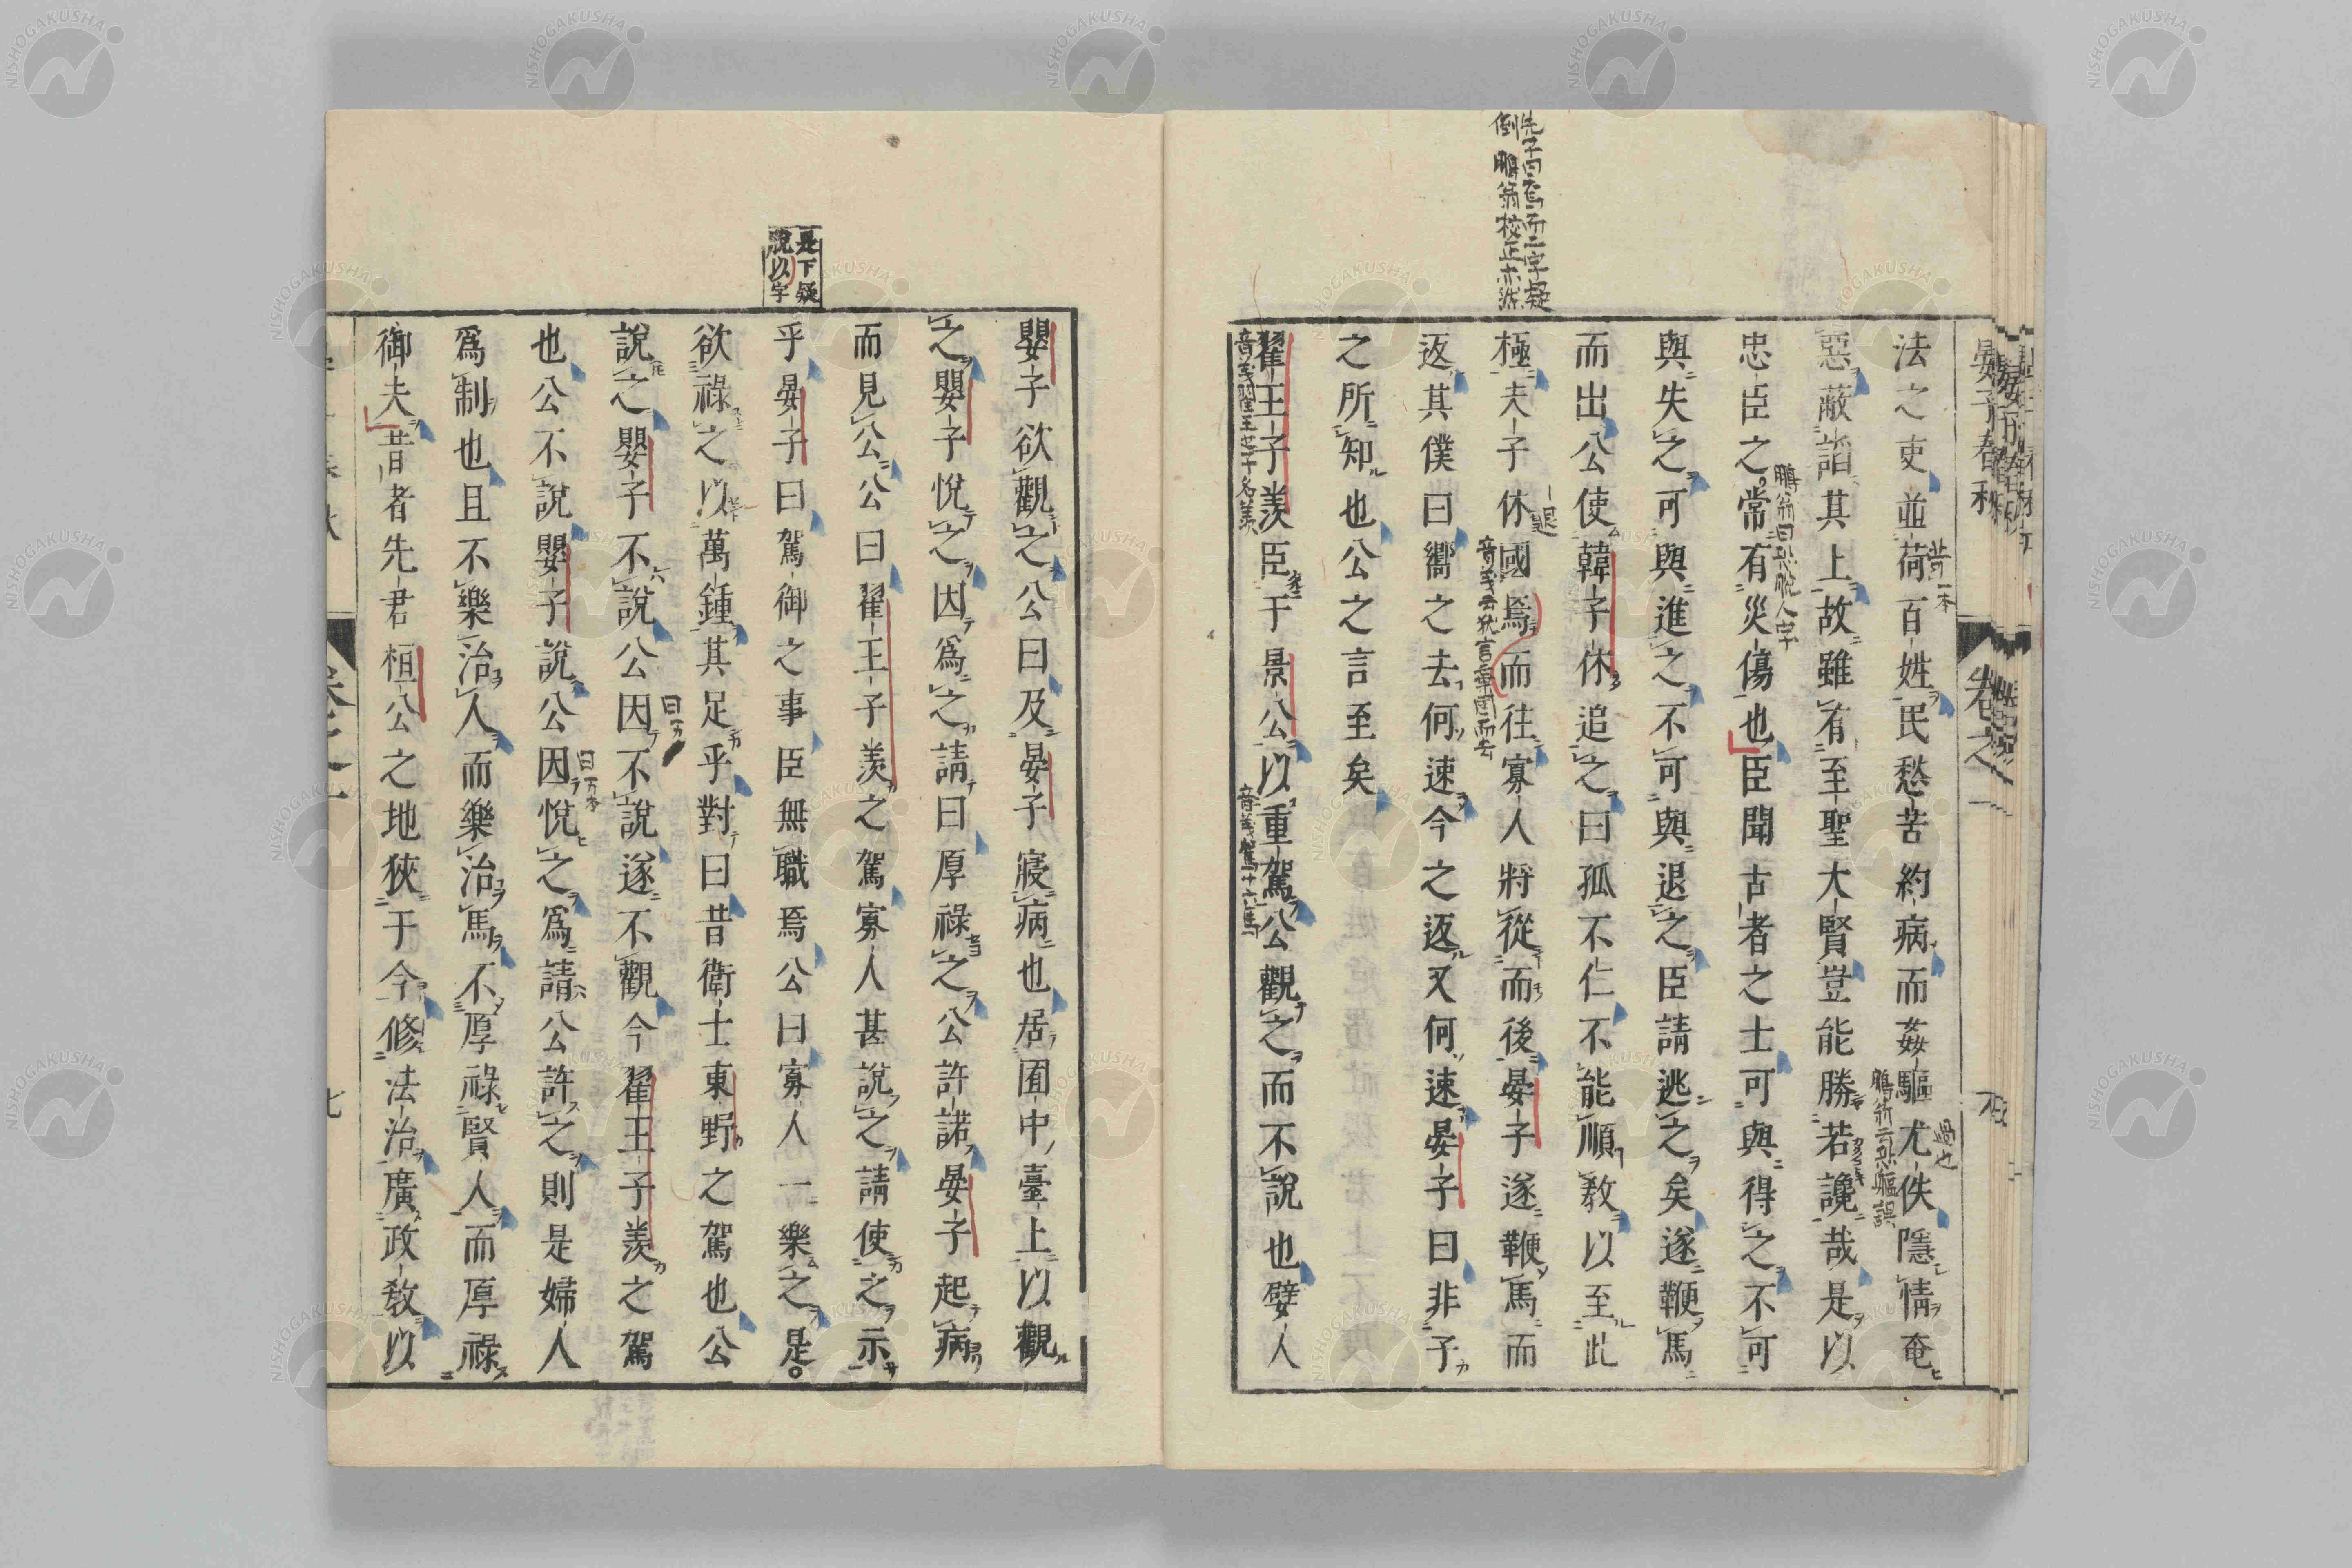 先子曰焉而二字疑
倒 鵬翁校正亦然
晏子春秋
卷之一
法之吏並荷百姓民愁苦約病而姦驅尤佚隱情奄
惡蔽諂其上故雖有至聖大賢豈能勝若讒哉是以
忠臣之常有災傷也臣聞古者之士可與得之不可
與失之可與進之不可與退之臣請逃之矣遂鞭馬
而出公使韓子休追之曰孤不仁不能順敎以至此
極夫子休國焉而往寡人將從而後晏子遂鞭馬而
返其僕曰嚮之去何速今之返又何速晏子曰非子
之所知也公之言至矣
翟王子羨臣于景公以重駕公觀之而不說也嬖人
昔一本
過也
鵬翁云恐軀誤
鵬翁曰恐脫人字
退
音義云猶言棄國而去
音義翟王之子名羨
是下疑
說以字
嬰子欲觀之公曰及晏子寢病也居囿中臺上以觀
之嬰子悅之因爲之請曰厚祿之公許諾晏子起病
而見公公曰翟王子羨之駕寡人甚說之請使之示
乎晏子曰駕御之事臣無職焉公曰寡人一樂之是
欲祿之以萬鍾其足乎對曰昔衛士東野之駕也公
說之嬰子不說公因不說遂不觀今翟王子羨之駕
也公不說嬰子說公因悅之爲請公許之則是婦人
爲制也且不樂治人而樂治馬不厚祿賢人而厚祿
御夫昔者先君桓公之地狹于今修法治廣政敎以